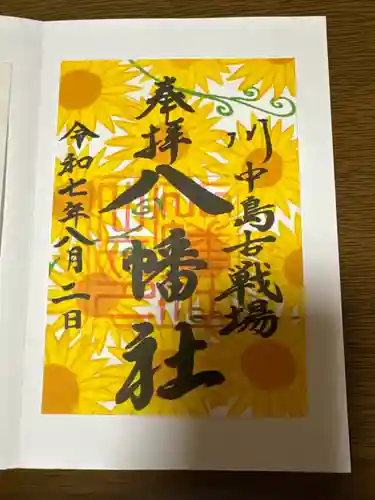 川中島古戦場
奉拝
八幡社
令和七年八月二日